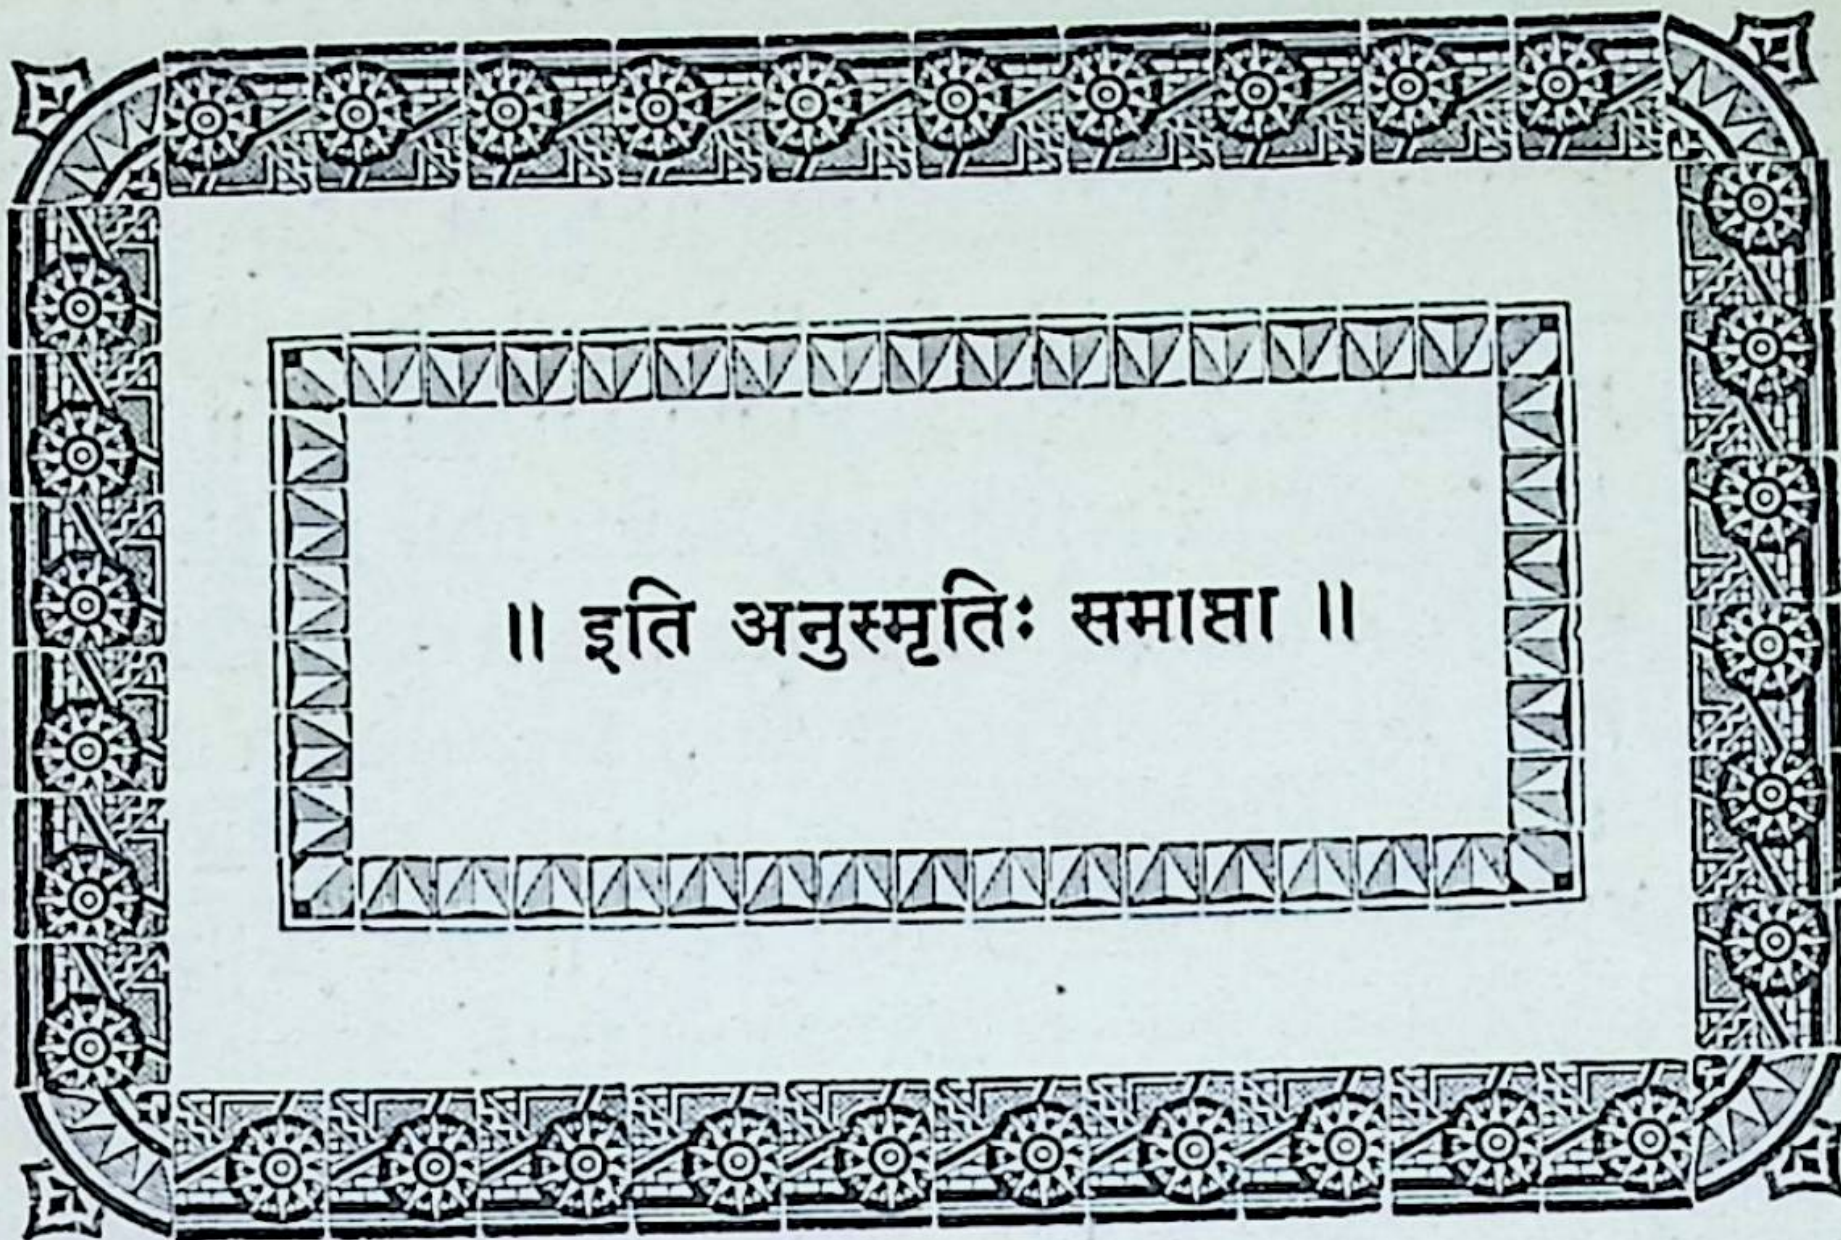 ॥ इति अनुस्मृतिः समाप्ता ॥